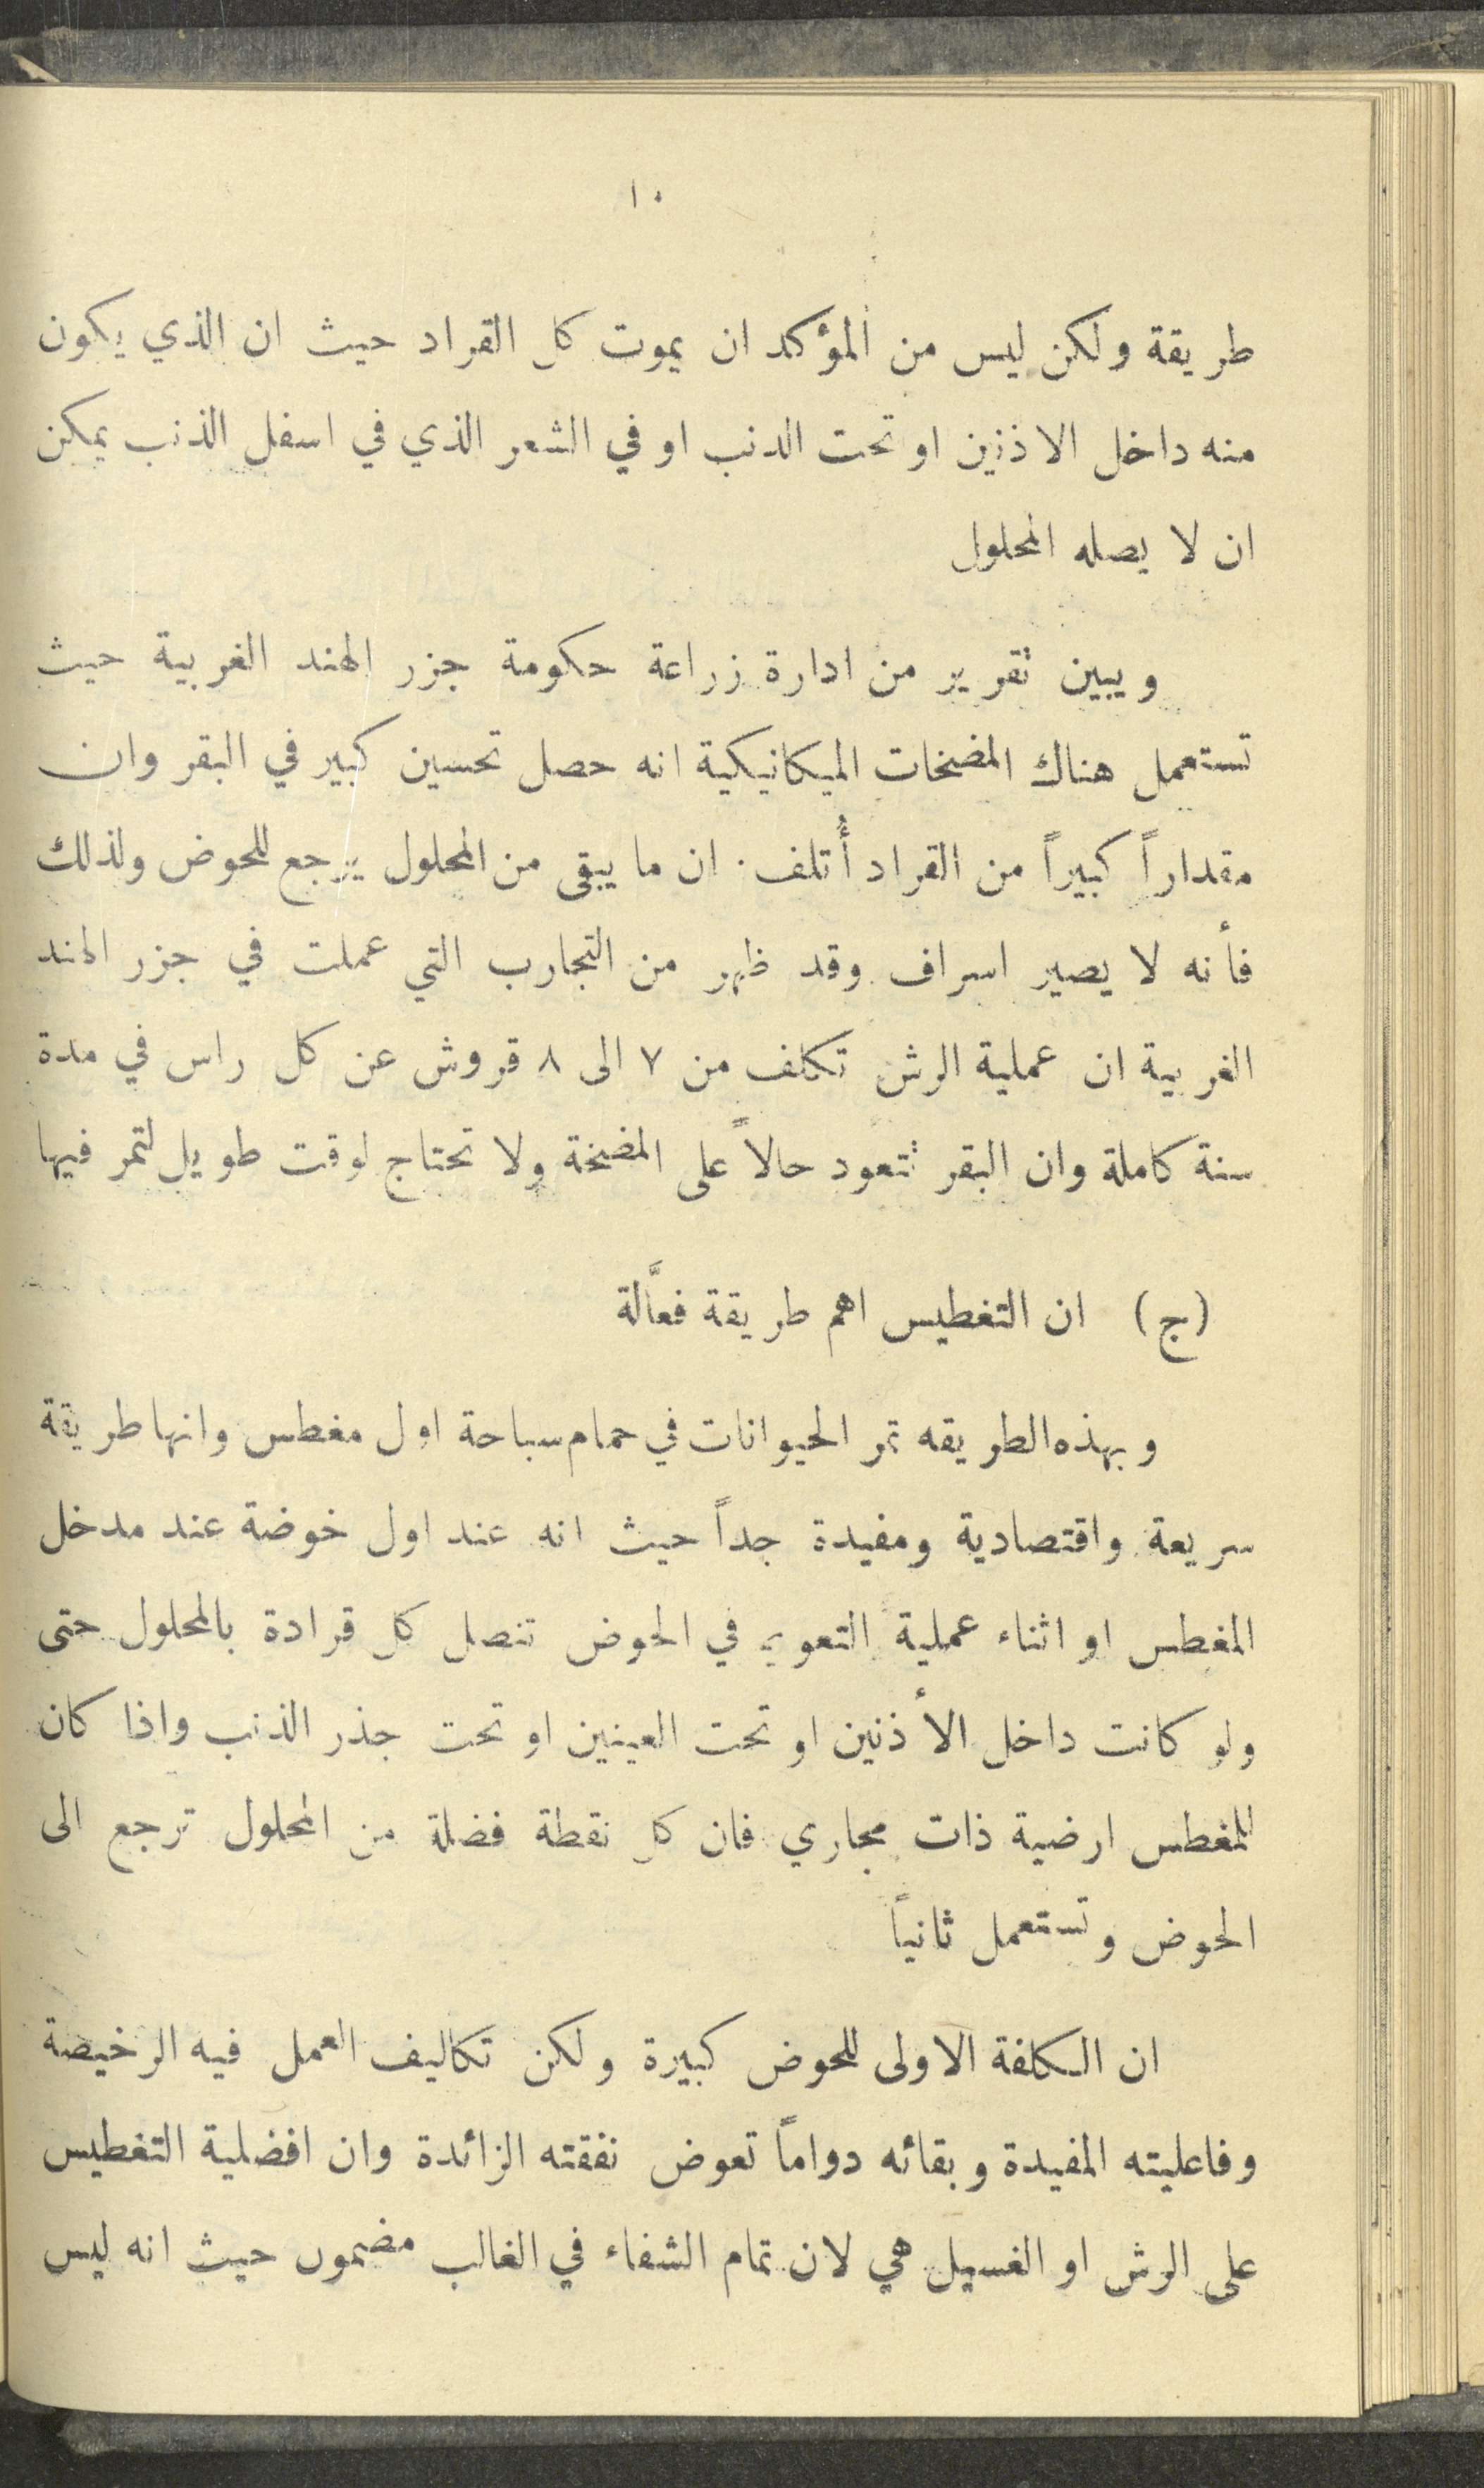 ١٠
طريقة ولكن ليس من المؤكد ان يموت كل القراد حيث ان الذي يكون
منه داخل الاذنين او تحت الدنب او في الشعر الذي في اسفل الذنب يمكن
ان لا يصله المحلول
ويبين تقرير من ادارة زراعة حكومة جزر الهند الغربية حيث
تستعمل هناك المضخات الميكانيكية انه حصل تحسين كبير في البقر وان
مقداراً كبيراً من القراد أُتلف. ان ما يبقى من المحلول يرجع للحوض ولذلك
فأنه لا يصير اسراف وقد ظهر من التجارب التي عملت في جزر الهند
الغربية ان عملية الرش تكلف من ٧ الى ٨ قروش عن كل راس في مدة
سنة كاملة وان البقر تتعود حالاً على المضخة ولا تحتاج لوقت طويل لتمر فيها
(ج) ان التغطيس اهم طريقة فعَّالة
وبهذه الطريقه تمر الحيوانات في حمام سباحة اول مغطس وانها طريقة
سريعة واقتصادية ومفيدة جداً حيث انه عند اول خوضة عند مدخل
المغطس او اثناء عملية التعويم في الحوض تتصل كل قرادة بالمحلول حتى
ولو كانت داخل الأذنين او تحت العينين او تحت جذر الذنب واذا كان
للمغطس ارضية ذات مجاري فان كل نقطة فضلة من المحلول ترجع الى
الحوض وتستعمل ثانياً
ان الكلفة الاولى للحوض كبيرة ولكن تكاليف العمل فيه الرخيصة
وفاعليته المفيدة وبقائه دواماً تعوض نفقته الزائدة وان افضلية التغطيس
على الرش او الغسيل هي لان تمام الشفاء في الغالب مضمون حيث انه ليس